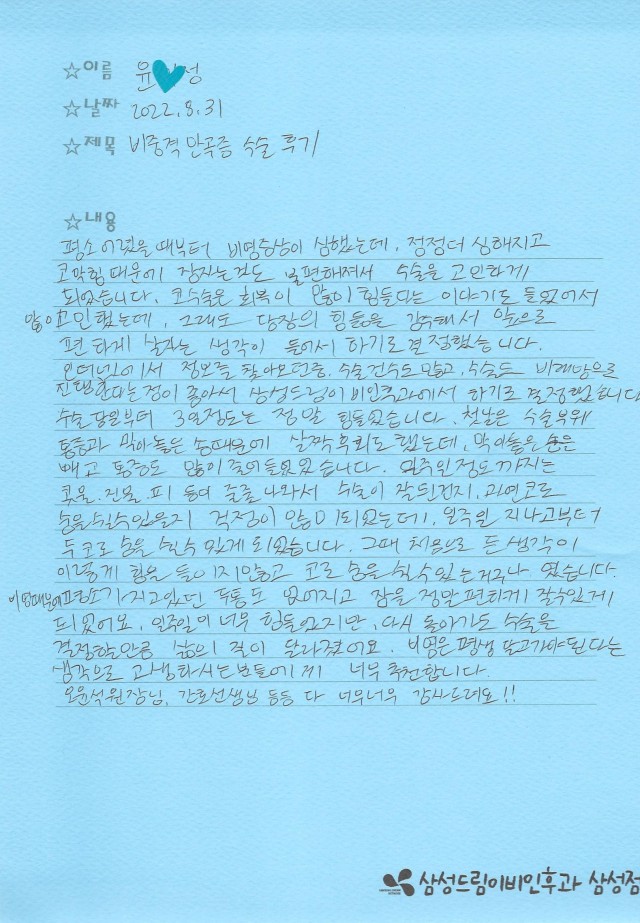 ☆이름 윤 성
☆날짜 2022. 8. 31
☆제목 비중격 만곡증 수술 후기
☆내용
평소 어렸을 때부터 비염증상이 심했는데, 점점더 심해지고
코막힘 때문에 잠자는것도 불편해져서 수술을 고민하게
되었습니다. 코수술은 회복이 많이 힘들다는 이야기도 들었어서
많이 고민 했는데, 그래도 당장의 힘듦을 감수해서 앞으로
편하게 살자는 생각이 들어서 하기로 결정했습니다.
인터넷에서 정보를 찾아보던중, 수술건수도 많고, 수술도 비개방으로
진행한다는점이 좋아서 삼성드림이비인후과에서 하기로 결정했습니다
수술 당일부터 3일정도는 정말 힘들었습니다. 첫날은 수술부위
통증과 막아놓은 솜때문에 살짝 후회도 했는데, 막아놓은 솜은
빼고 통증도 많이 줄어들었었습니다. 일주일정도 까지는
콧물. 진물. 피 등이 줄줄 나와서 수술이 잘된건지, 과연 코로
숨을 쉴수있을지 걱정이 많이 되었는데, 일주일 지나고부터
두 코로 숨을 쉴수 있게 되었습니다. 그때 처음으로 든 생각이
이렇게 힘을 들이지않고 코로 숨을 쉴수 있는거구나 였습니다.
비염때문에 평소 가지고있던 두통도 없어지고 잠을 정말 편하게 잘수있게
되었어요. 일주일이 너무 힘들었지만, 다시 돌아가도 수술을
결정할만큼 삶의 질이 달라졌어요. 비염은 평생 달고가야된다는
생각으로 고생하시는분들에게 너무 추천합니다.
오윤석원장님, 간호선생님 등등 다 너무너무 감사드려요!!
삼성드림이비인후과 삼성점